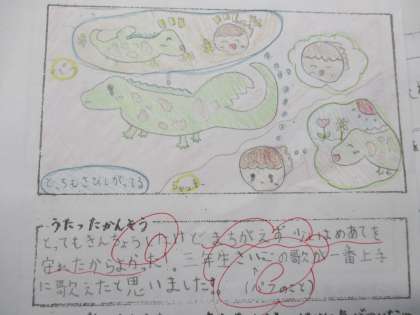 どっちもさびしがってる
うたったかんそう
とってもきんちょうしたけど、まちがえず めあてを
守れたからよかった。三年生さいごの歌が一番上手
に歌えたと思いました。